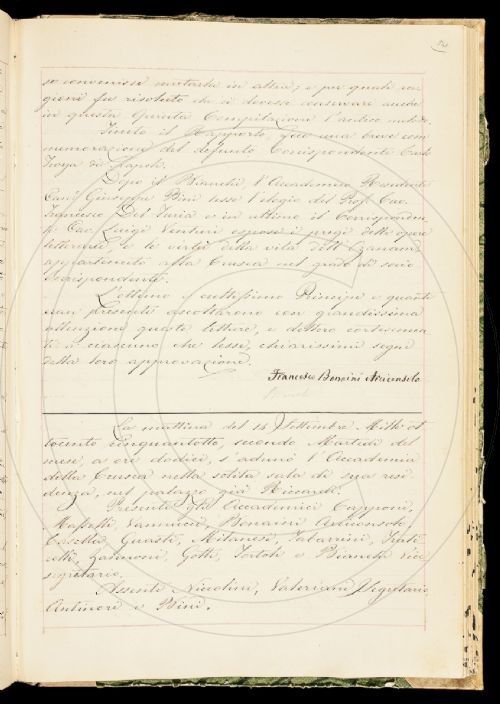 si convenisse mutarlo in altra; e per quali ra-
gioni fu risoluto che si dovesse conservare anche
in questa Quinta Compilazione l'antico metodo.
Finito il Rapporto, fece una breve com-
memorazione del defunto Corrispondente Carlo
Troya di Napoli.
Dopo il Bianchi, l'Accademico Residente
Can.co Giuseppe Bini lesse l'elogio del Prof. Cav.
Francesco Del Furia e in ultimo il Corrisponden-
te Cav. Luigi Venturi espose i pregi delle opere
letterarie, e le virtù della vita dell'
appartenuto alla Crusca nel grado di socio
corrispondente.
L'ottimo e cultissimo Principe e quanti
eran presenti ascoltarono con grandissima
attenzione queste letture, e dettero cortesemen-
te a ciascuno che lesse, chiarissimi segni
della loro approvazione.
Francesco Bonaini Arciconsolo
La mattina del 14 Settembre Mille ot-
tocento cinquantotto, secondo Martedì del
mese, a ore dodici, s'adunò l'Accademia
della Crusca nella solita sala di sua resi-
denza, nel palazzo già Riccardi.
Presenti gli Accademici Capponi,
Maffei, Vannucci, Bonaini Arciconsolo,
Casella, Guasti, Milanesi, Tabarrini,
Zannoni, Gotti, Tortoli e Bianchi Vice
segretario.
Assenti Niccolini, Valeriani, Segretario,
Antinori e Bini.